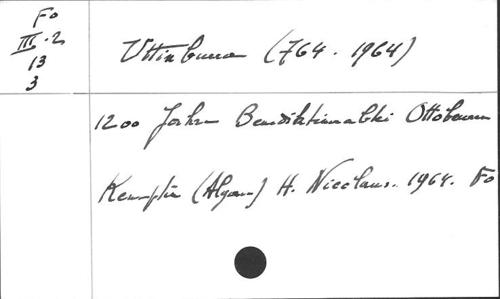 Fo
III.2
13
3
Uttinbura (764 - 1964)
1200 Jahre Benediktinerabtei Ottobeuren
Kempten (Allgäu) H. Nicolaus. 1964. Fo